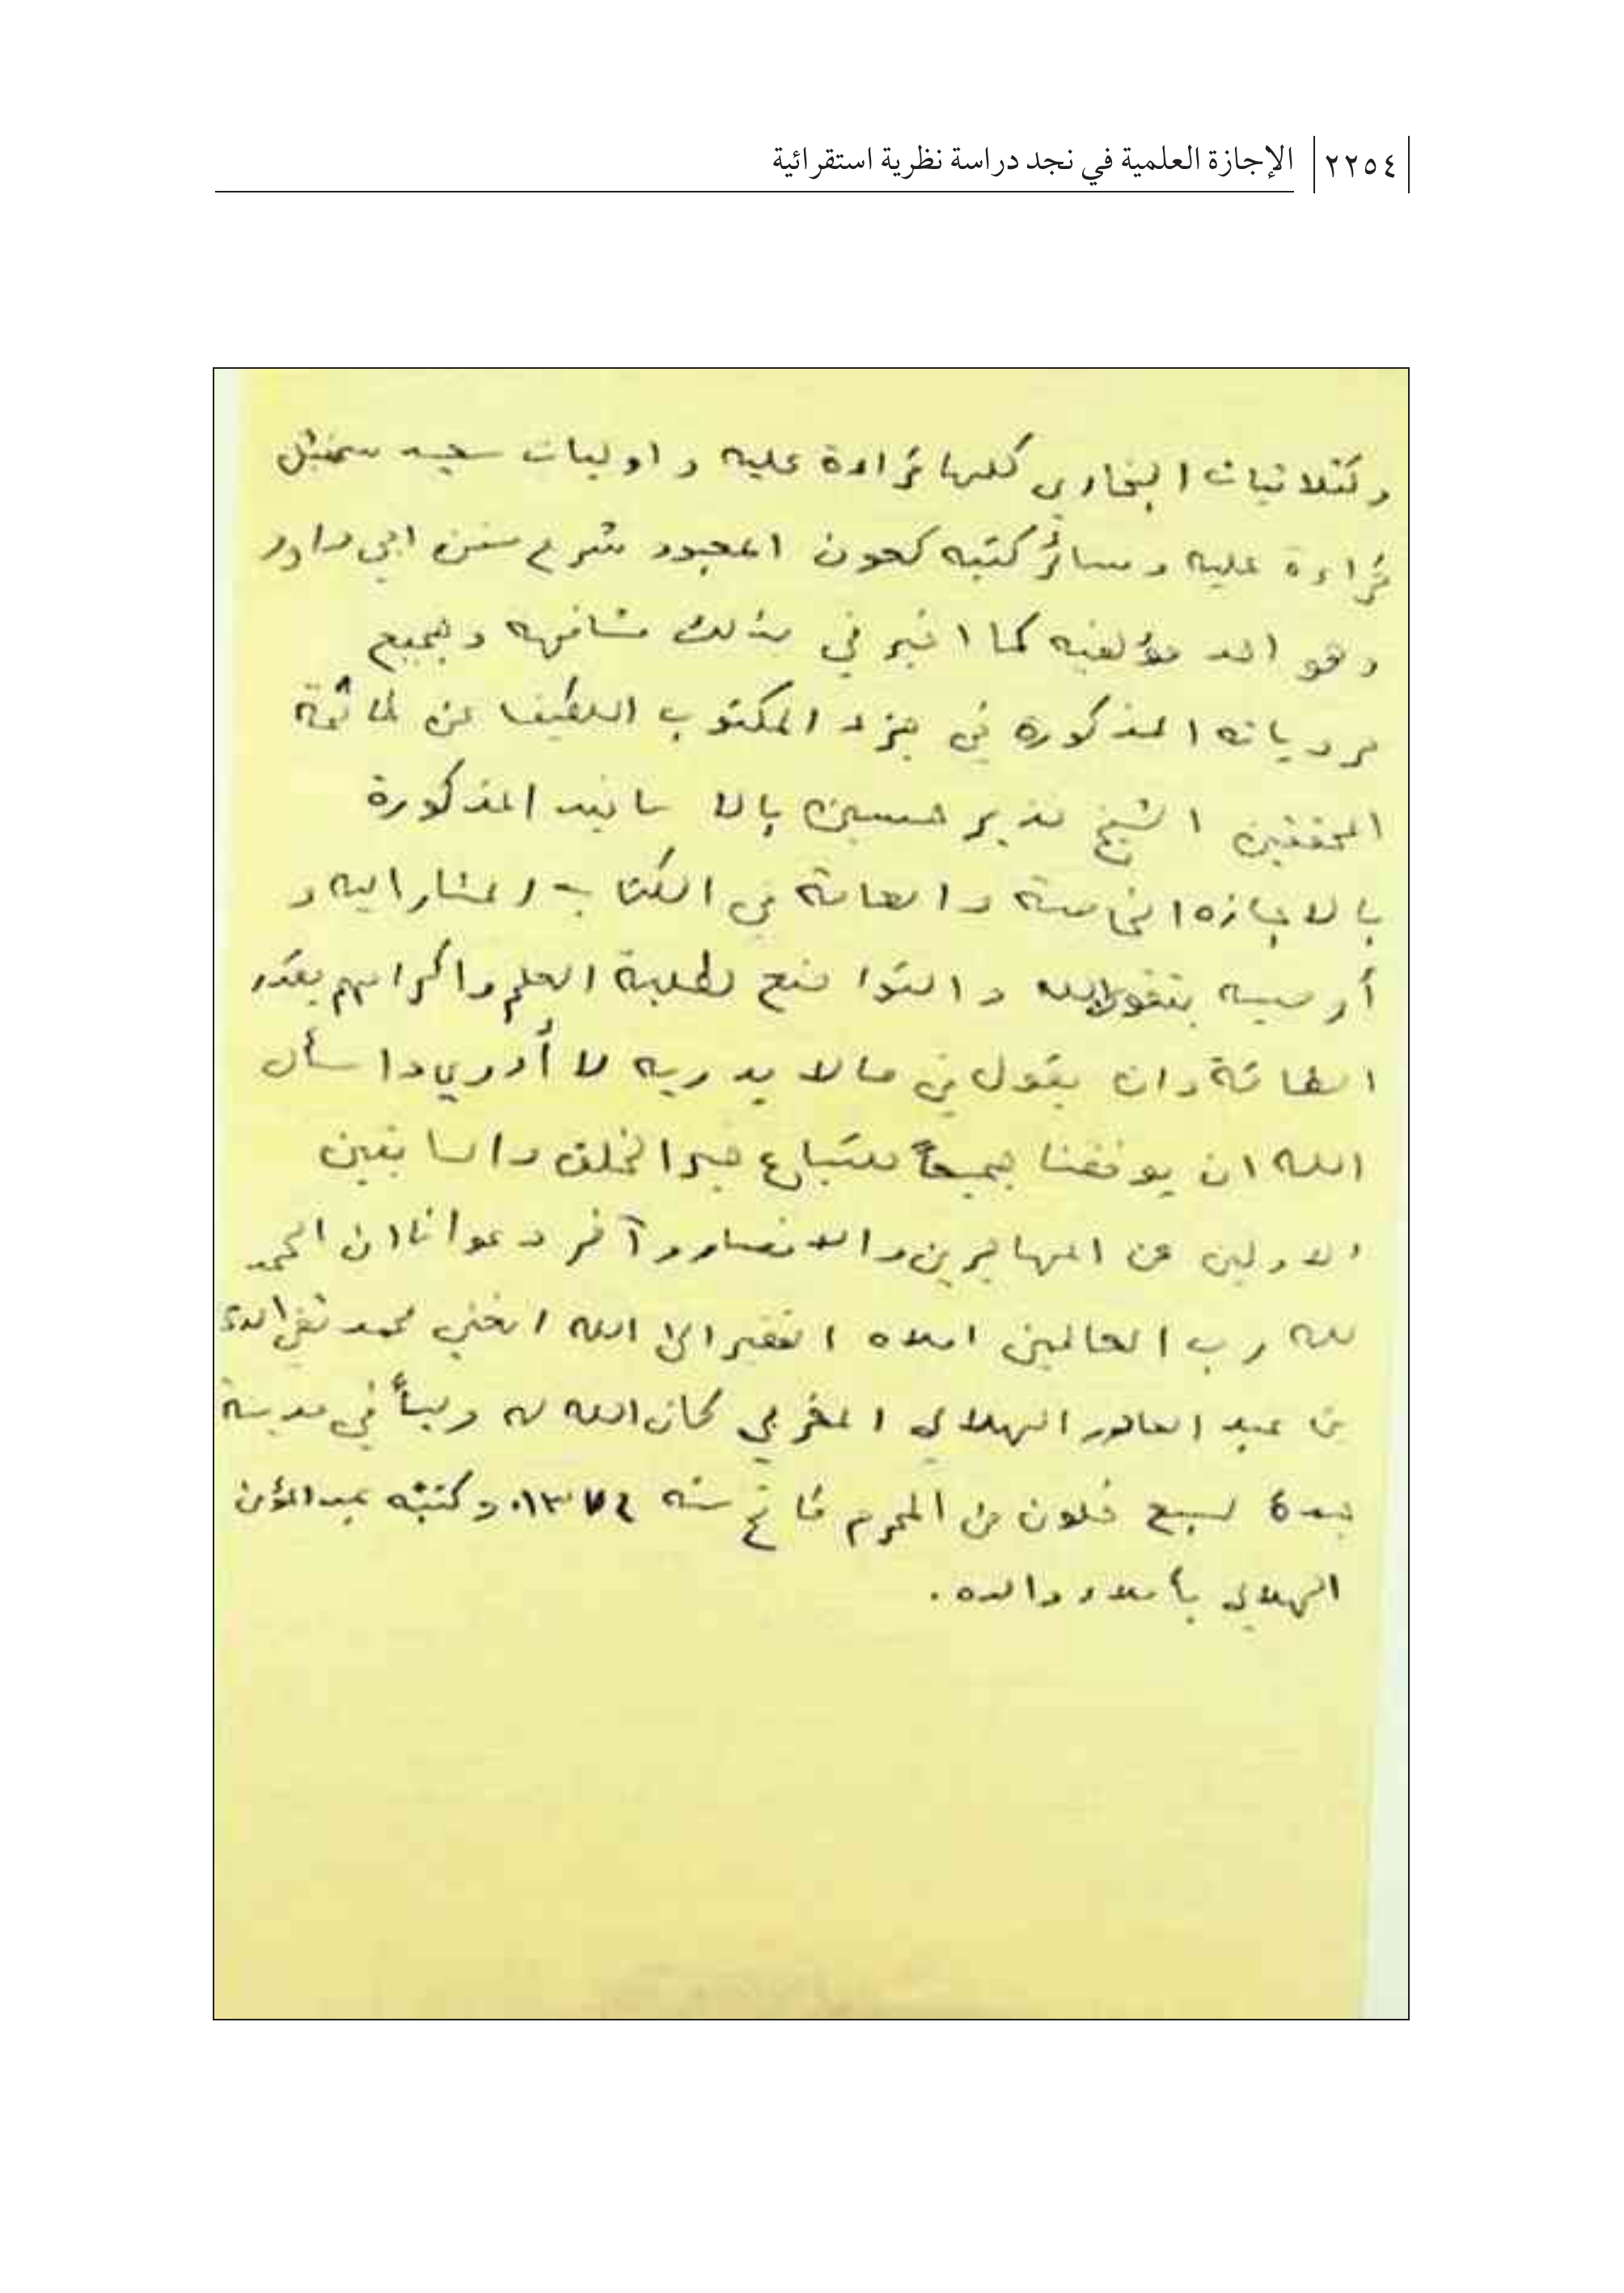 ٢٢٥٤ الإجازة العلمية في نجد دراسة نظرية استقرائية
وكثلاثيات البخاري كلها قراءة عليه واوليات سعيد سنبل
قراءة عليه وسائر كتبه كعون المعبود شرح سنن ابي داود
وهو احد مؤلفيه كما اخبرني بذلك مشافهه وبجميع
مروياته المذكوره في جزء المكتوب اللطيف عن خاتمة
المحققين الشيخ نذير حسين بالاسانيد المذكورة
بالاجازه الخاصة والعامة في الكتاب المشار اليه و
أوصيه بتقوى الله والتواضع لطلبة العلم واكرامهم بقدر
الطاقة وان يقول في مالا يدريه لا أدري واسأل
الله ان يوفقنا جميعاً لاتباع خير الخلق والسابقين
الاولين من المهاجرين والانصار وآخر دعوانا ان الحمد
لله رب العالمين املاه الفقير الى الله الغني محمد تقي الدين
بن عبد القادر الهلالي المغربي كان الله له ولياً في مدينة
جدة لسبع خلون من المحرم فاتح سنه ١٣٧٤. وكتبه عبد المؤمن
الهلالي بأملاء والده.